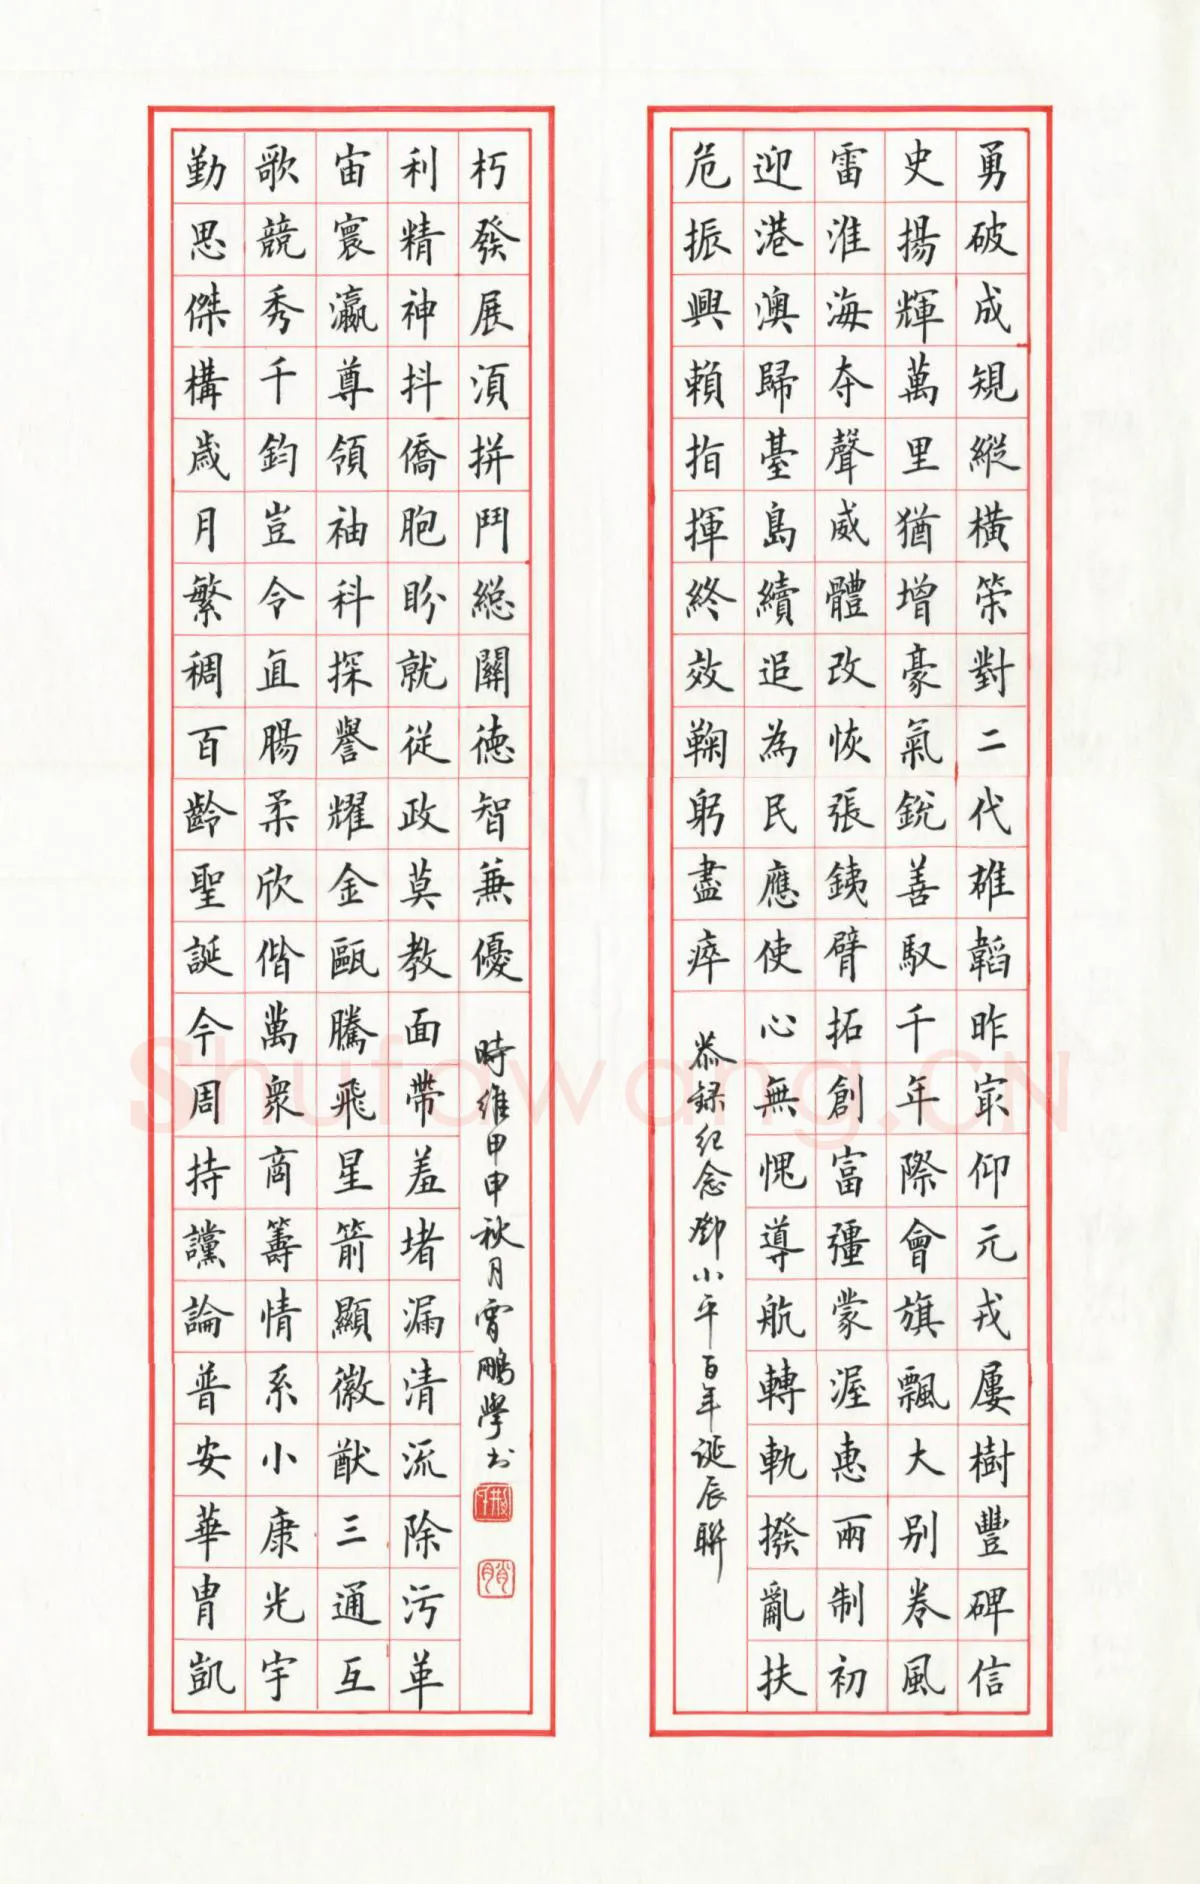 勇破成規縱橫策對二代雄韜昨冣仰元戎屢樹豐碑信
史揚輝萬里猶增豪氣銳善馭千年際會旗飄大别卷風
雷淮海夺聲威體改恢張銕臂拓創富疆蒙渥惠兩制初
迎港澳歸臺島續追為民應使心無愧導航轉軌撥亂扶
危振興賴指揮終效鞠躬盡瘁
恭録紀念鄧小平百年誕辰聯
勤思傑構歲月繁稠百齡聖誕今周持讜論普安華胄凱
歌競秀千鈞豈令直腸柔欣偕萬衆商籌情系小康光宇
宙寰瀛尊領袖科探譽耀金甌騰飛星箭顯徽猷三通互
利精神抖僑胞盼就從政莫教面帶羞堵漏清流除污革
朽發展須拼鬥總關德智兼優
時維甲申秋月霄鵬學书
Shufawang.CN